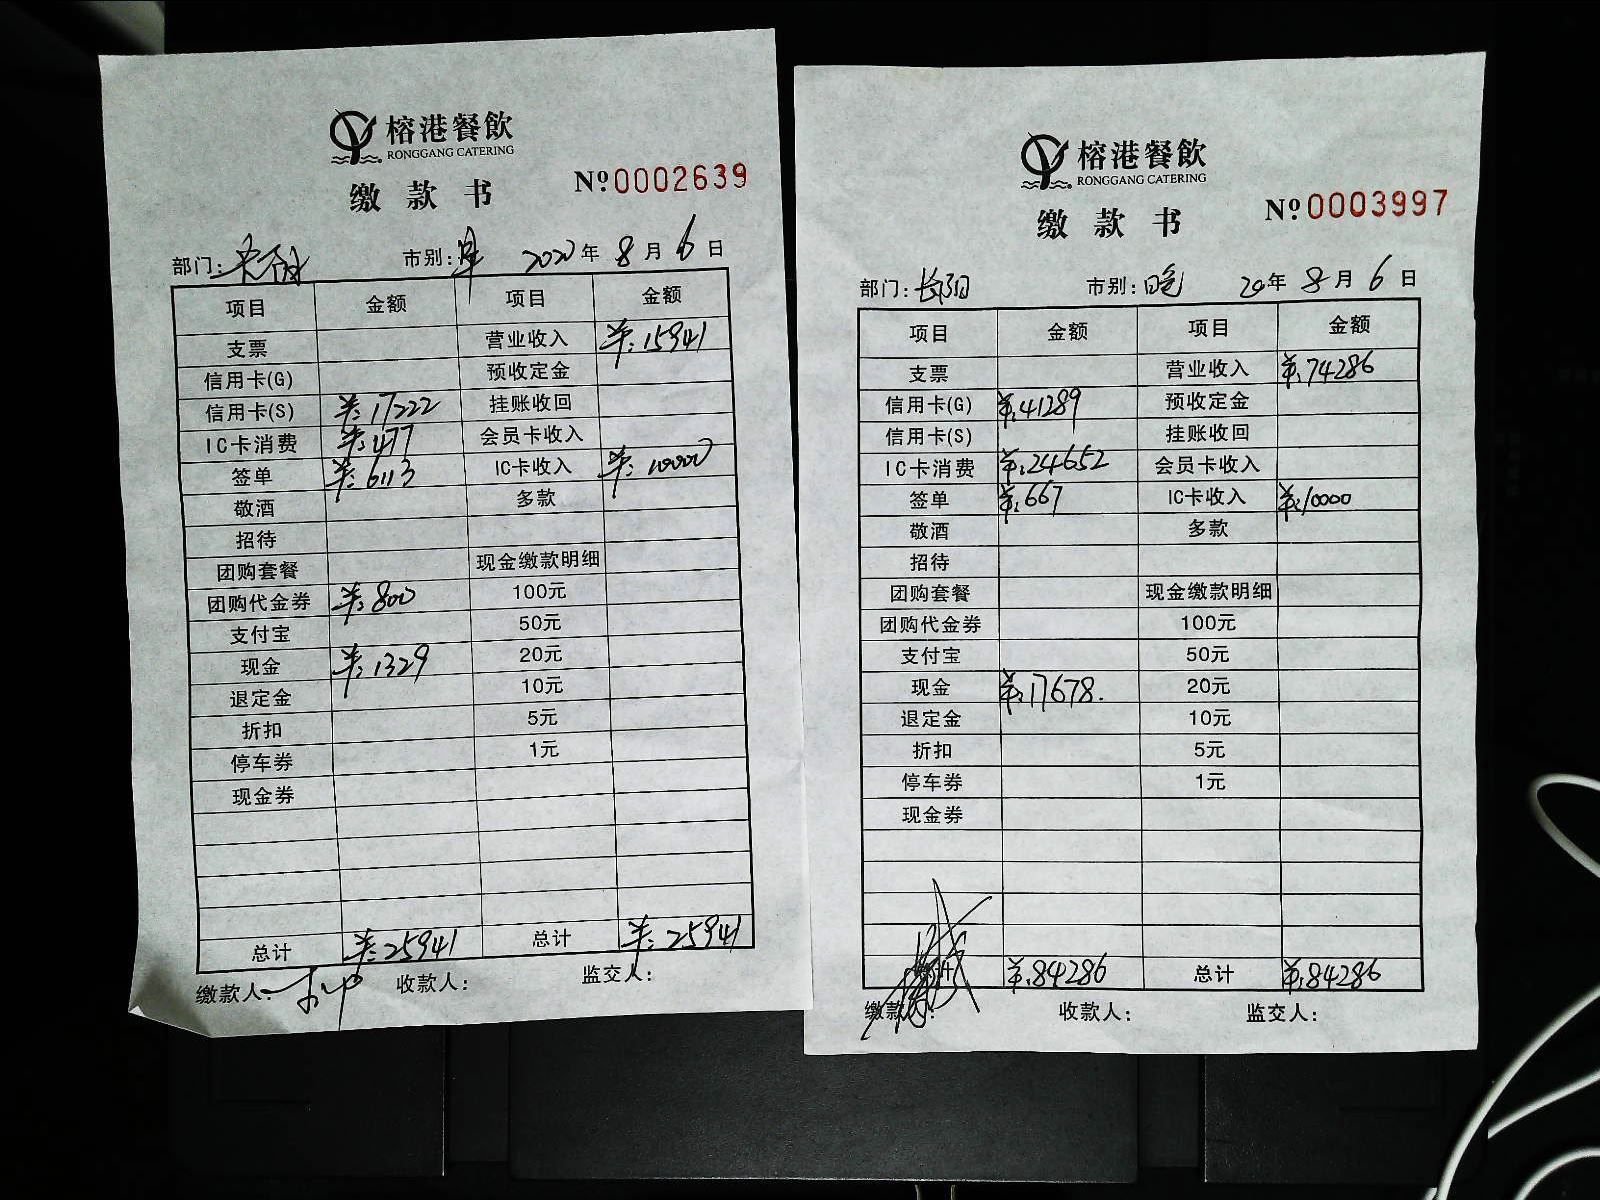 榕港餐飲
RONGGANG CATERING
缴款书
№0002639
部门: 市别: 早 2020年8月6日
项目 金额 项目 金额
支票 营业收入 ¥:15941
信用卡(G) 预收定金
信用卡(S) ¥:17222 挂账收回
IC卡消费 ¥:477 会员卡收入
签单 ¥:6113 IC卡收入 ¥:10000
敬酒 多款
招待
团购套餐 现金缴款明细
团购代金券 ¥:800 100元
支付宝 50元
现金 ¥:1329 20元
退定金 10元
折扣 5元
停车券 1元
现金券
总计 ¥:25941 总计 ¥:25941
缴款人: 收款人: 监交人:
榕港餐飲
RONGGANG CATERING
缴款书
№0003997
部门: 长阳 市别: 晚 20年8月6日
项目 金额 项目 金额
支票 营业收入 ¥:74286
信用卡(G) ¥:41289 预收定金
信用卡(S) 挂账收回
IC卡消费 ¥:24652 会员卡收入
签单 ¥:667 IC卡收入 ¥:10000
敬酒 多款
招待
团购套餐 现金缴款明细
团购代金券 100元
支付宝 50元
现金 ¥:17678. 20元
退定金 10元
折扣 5元
停车券 1元
现金券
总计 ¥:84286 总计 ¥:84286
缴款人: 收款人: 监交人: